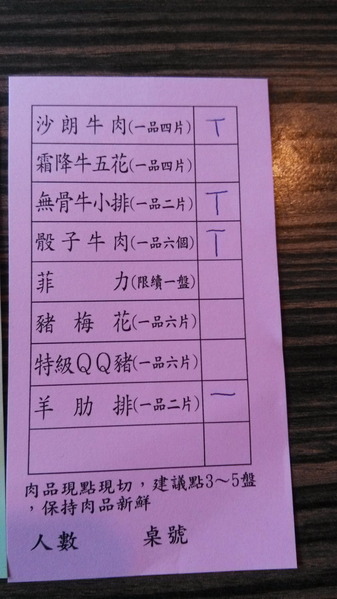 沙朗牛肉(一品四片) 丅
霜降牛五花(一品四片)
無骨牛小排(一品二片) 丅
骰子牛肉(一品六個) 丅
菲力(限續一盤)
豬梅花(一品六片)
特級QQ豬(一品六片)
羊肋排(一品二片) 一
肉品現點現切，建議點3～5盤
，保持肉品新鮮
人數 桌號